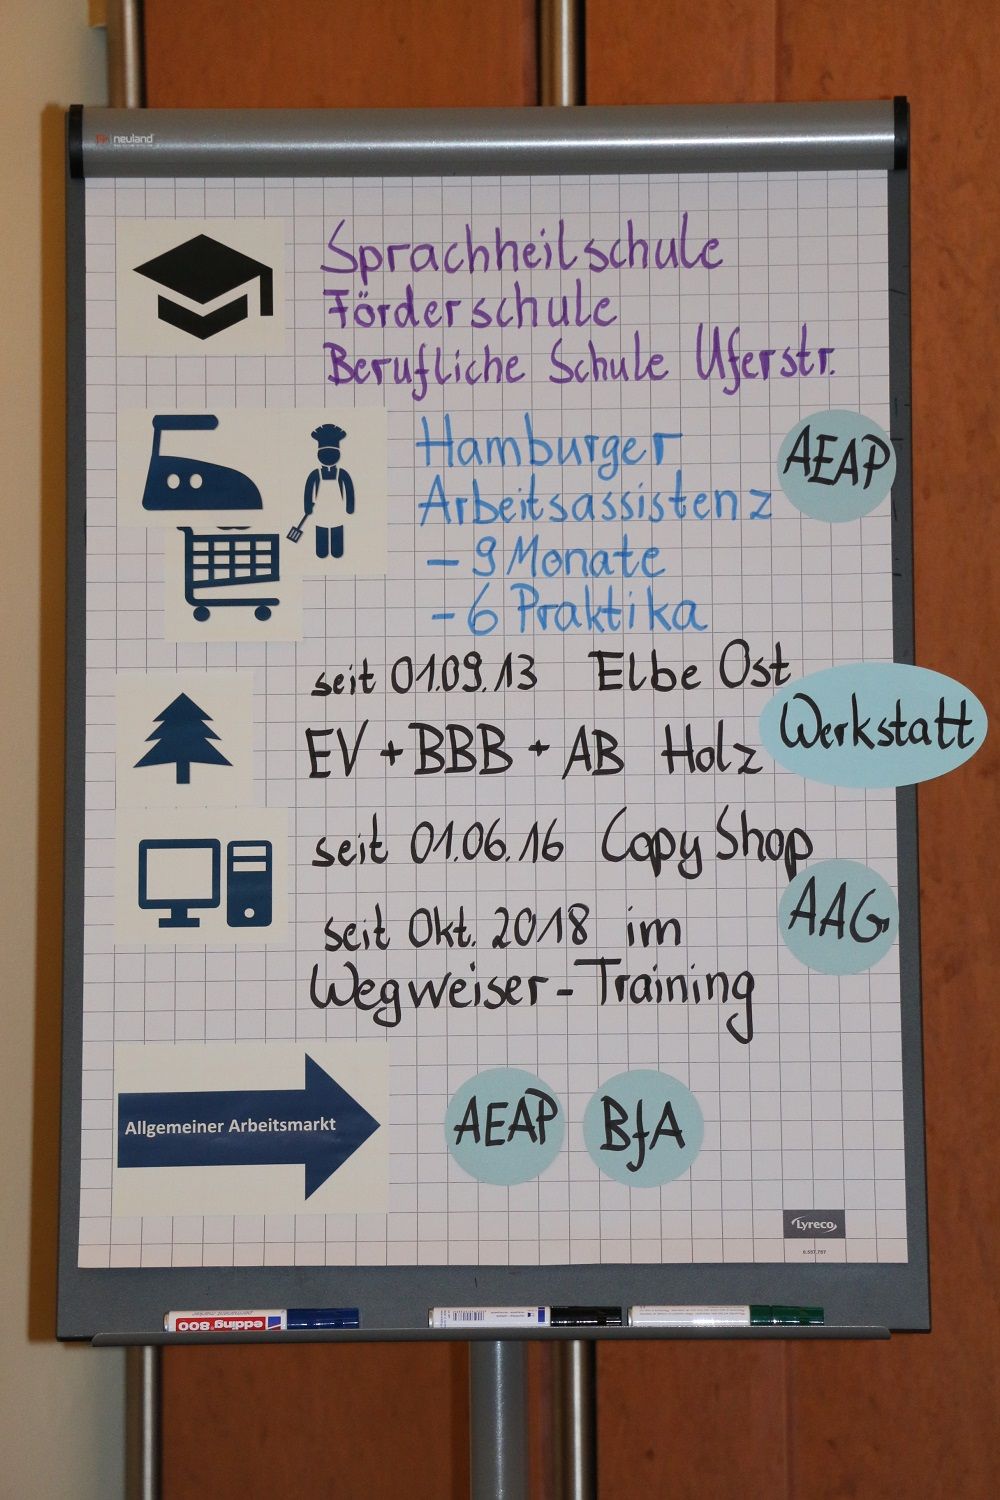 neuland
Sprachheilschule
Förderschule
Berufliche Schule Uferstr.
Hamburger
Arbeitsassistenz
- 9 Monate
- 6 Praktika
AEAP
seit 01.09.13 Elbe Ost
EV + BBB + AB Holz
Werkstatt
seit 01.06.16 Copy Shop
AAG
seit Okt. 2018 im
Wegweiser-Training
Allgemeiner Arbeitsmarkt
AEAP
BfA
Lyreco
6.557.757
edding 800
permanent marker